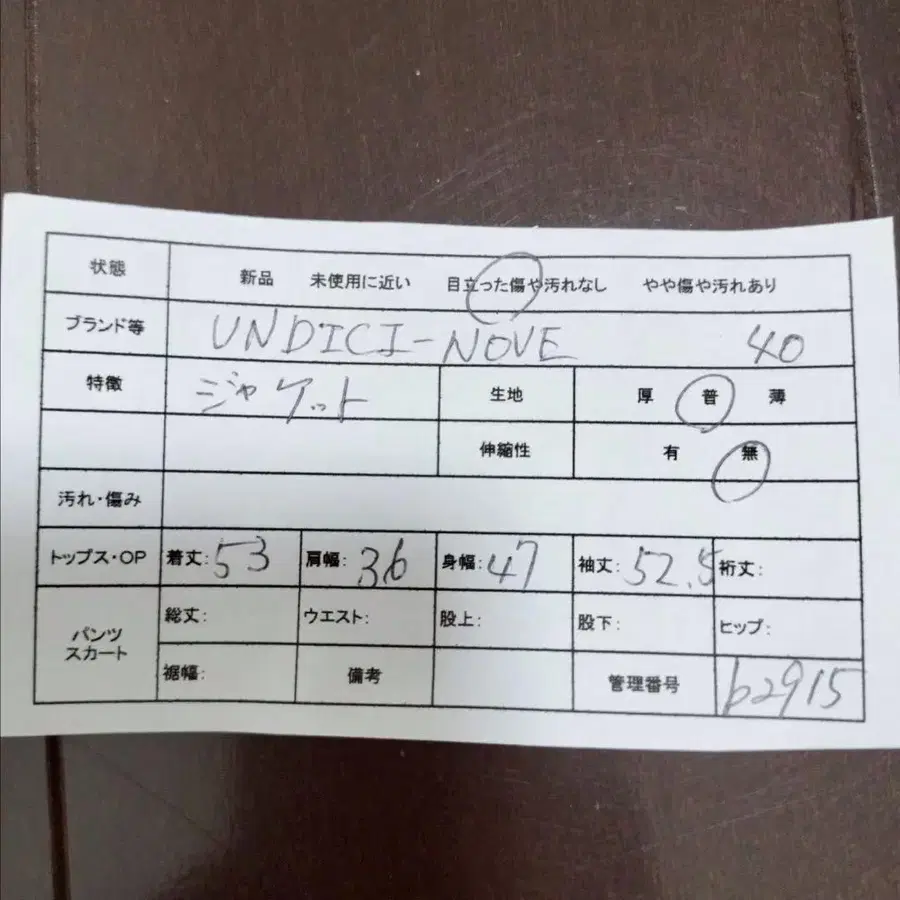 状態 新品 未使用に近い 目立った傷や汚れなし やや傷や汚れあり
ブランド等 UNDICI-NOVE 40
特徴 ジャケット 生地 厚 普 薄
伸縮性 有 無
汚れ・傷み
トップス・OP 着丈:53 肩幅:36 身幅:47 袖丈:52.5 裄丈:
パンツ スカート 総丈: ウエスト: 股上: 股下: ヒップ:
裾幅: 備考 管理番号 b2915